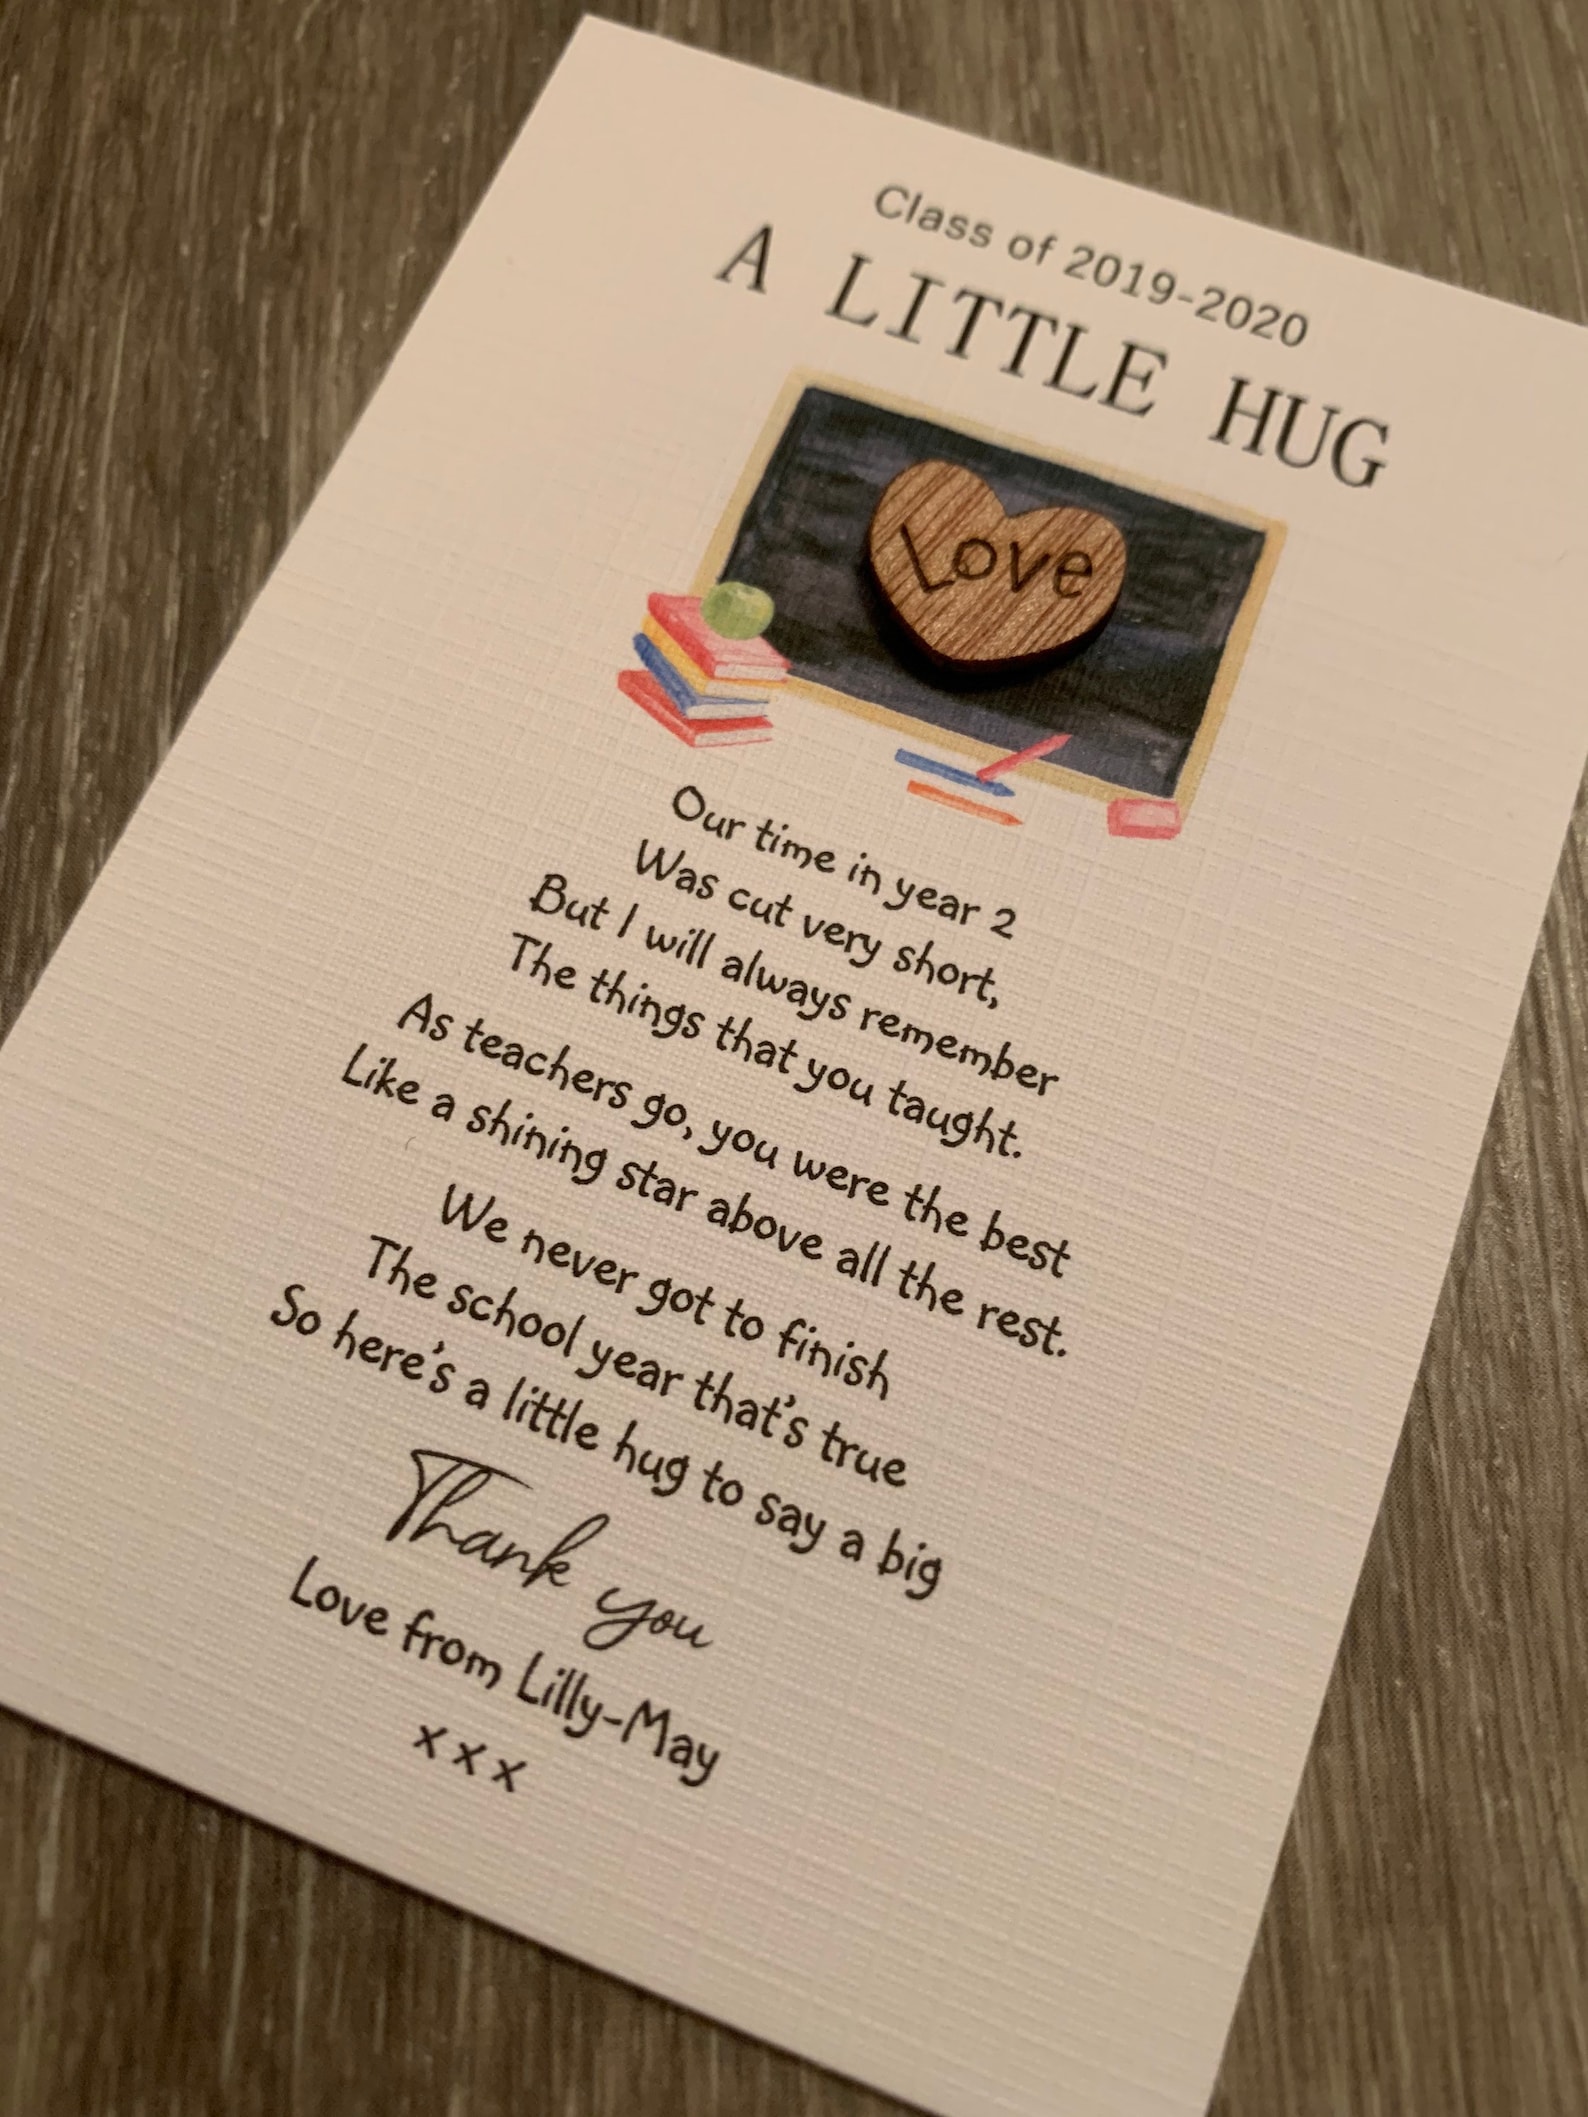 Class of 2019-2020
A LITTLE HUG
Love
Our time in year 2
Was cut very short,
But I will always remember
The things that you taught.
As teachers go, you were the best
Like a shining star above all the rest.
We never got to finish
The school year that's true
So here's a little hug to say a big
Thank you
Love from Lilly-May
x x x